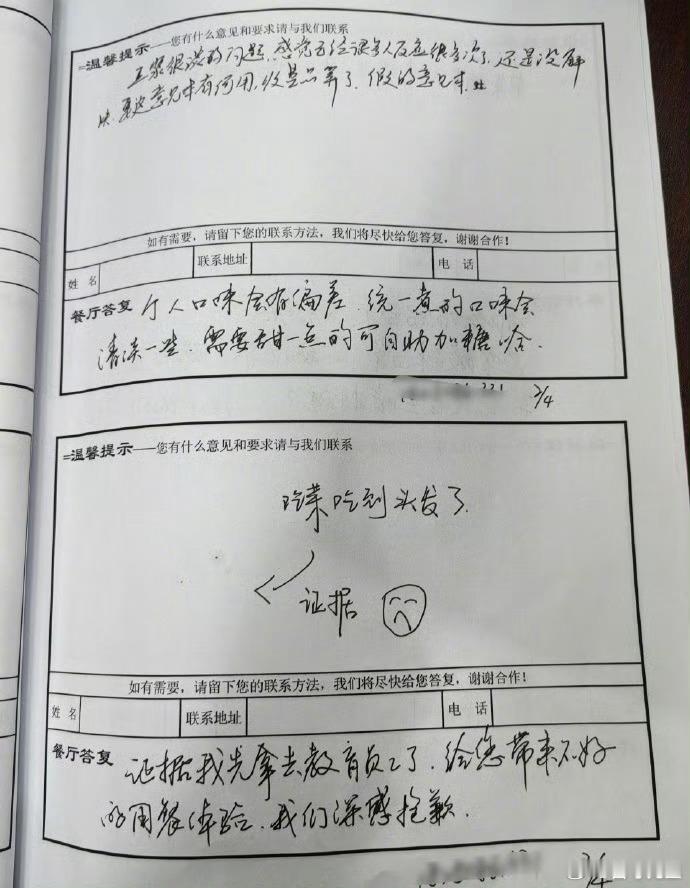 =温馨提示——您有什么意见和要求请与我们联系
豆浆很淡的问题,感觉已经很多人反应很多次了,还是没解
决.要这意见本有何用,收是算了,假的意见本.
如有需要,请留下您的联系方法,我们将尽快给您答复,谢谢合作!
姓 名 联系地址 电 话
餐厅答复 个人口味会有偏差.统一煮的口味会
清淡一些.需要甜一点的可自助加糖哈.
2/4
=温馨提示——您有什么意见和要求请与我们联系
吃菜吃到头发了.
证据
如有需要,请留下您的联系方法,我们将尽快给您答复,谢谢合作!
姓 名 联系地址 电 话
餐厅答复 证据我先拿去教育员工了.给您带来不好
的用餐体验.我们深感抱歉.
2/4